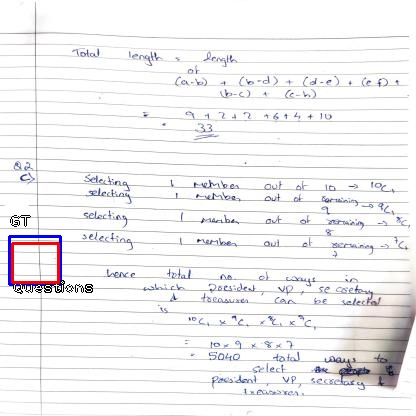 Total length = length
of
(a-b) + (b-d) + (d-e) + (e-f) +
(b-c) + (c-h)
= 9 + 2 + 2 + 6 + 4 + 10
= 33
Q2
C)
Selecting 1 member out of 10 → 10C1
selecting 1 member out of remaining → 9C1
9
selecting 1 member out of remaining → 8C1
8
selecting 1 member out of remaining → 7C1
7
GT
Questions
hence total no. of ways in
which president, VP, secretary
& treasurer can be selected
is
10C1 × 9C1 × 8C1 × 7C1
= 10 × 9 × 8 × 7
= 5040 total ways to
select
president, VP, secretary &
treasurer.